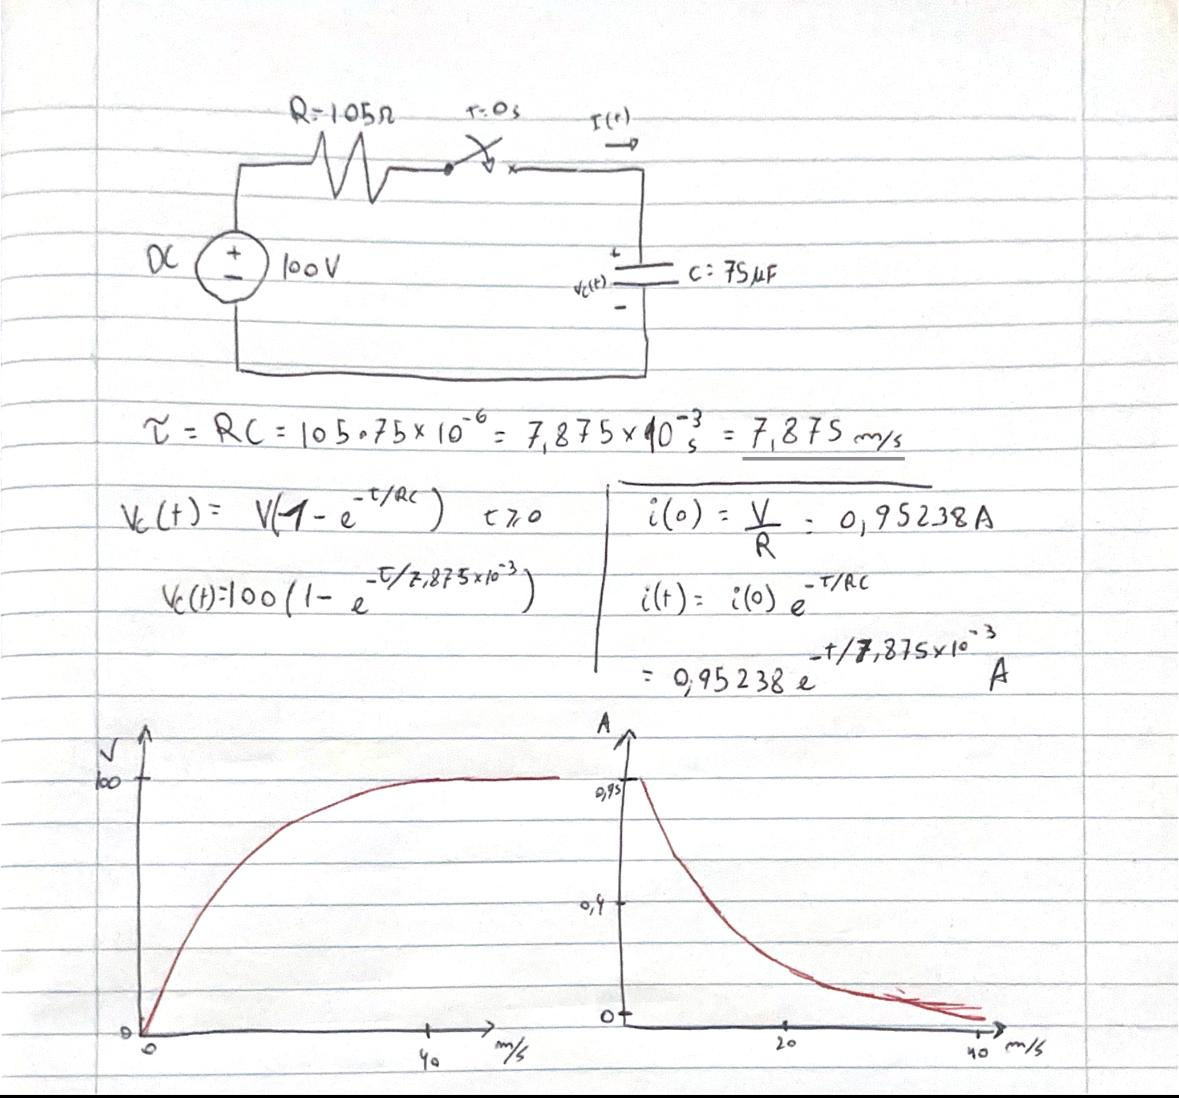 R=105Ω
t=0s
I(t)
DC
+
-
100V
+
Vc(t)
-
C=75μF
τ = RC = 105.75×10^-6 = 7,875×10^-3 s = 7,875 m/s
Vc(t) = V(1 - e^-t/RC) t≥0
Vc(t)=100(1- e^-t/7,875×10^-3)
i(0) = V/R = 0,95238A
i(t) = i(0) e^-t/RC
= 0,95238 e^-t/7,875×10^-3 A
V
100
0
0
40
m/s
A
0,95
0,4
0
20
40
m/s